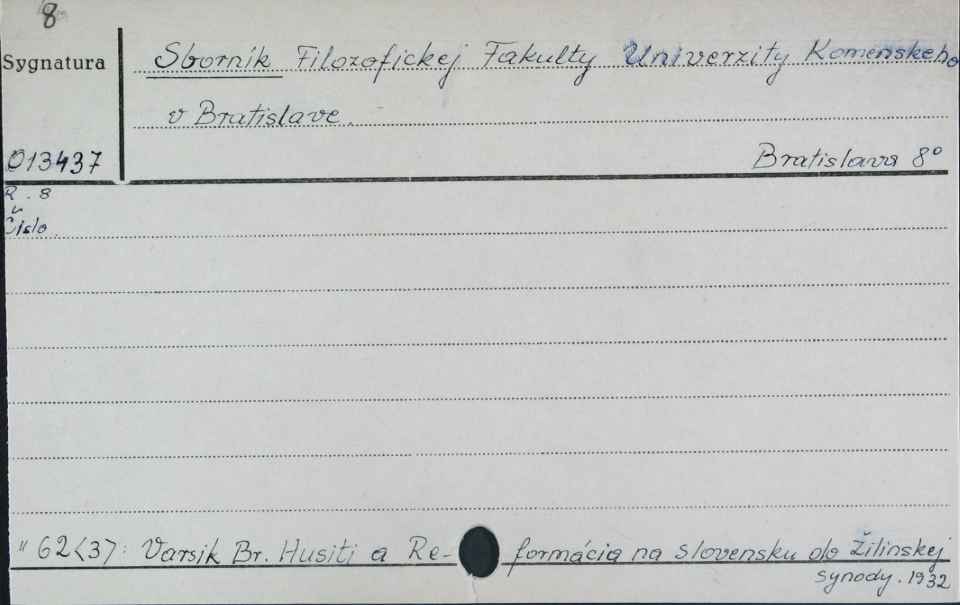 8
Sygnatura
Sborník Filozofickej Fakulty Univerzity Komenskeho
v Bratislave.
013437
Bratislava 8°
R. 8
Čislo
" 62<37: Varsik Br. Husiti a Re-formácia na Slovensku do Žilinskej
synody. 1932